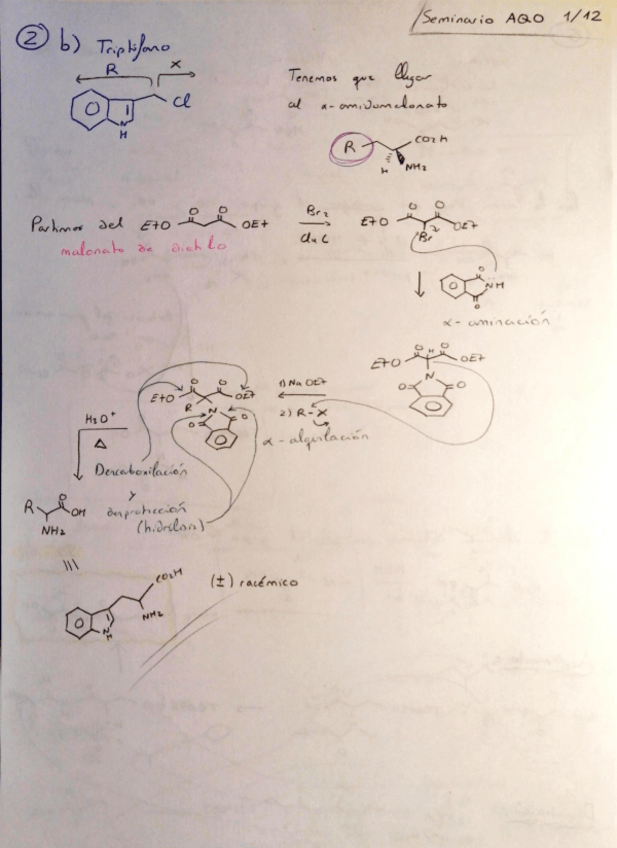 Seminario AQO 1/12
② b) Triptófano
R X
Cl
N
H
Tenemos que llegar
al α-amidomalonato
R CO2H
H NH2
Partimos del EtO O O OEt
malonato de dietilo
Br2
EtO O O OEt
Br
O NH O
α-aminación
EtO O H O OEt
N
O O
1) NaOEt
2) R-X
α-alquilación
EtO O O OEt
R N
O O
H3O+
Δ
Descarboxilación
y
desprotección
(hidrólisis)
R O OH
NH2
CO2H
NH2
N
H
(±) racémico